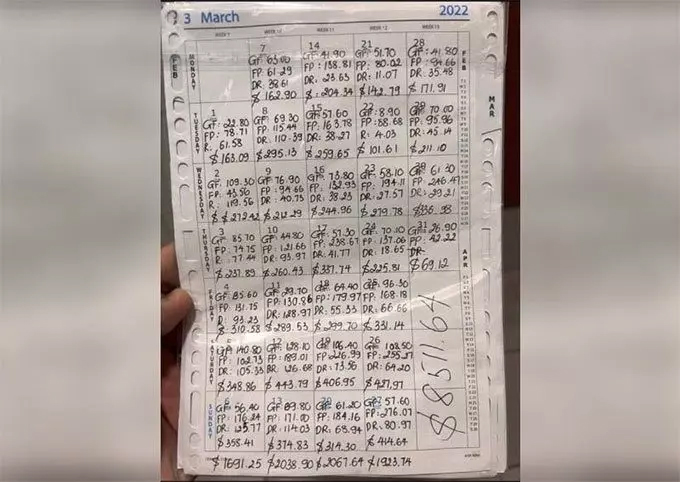 3 March 2022
WEEK 10
WEEK 11
WEEK 12
WEEK 13
FEB
MONDAY
7
GF: 63.00
FP: 61.29
DR: 38.61
$162.90
14
GF: 41.90
FP: 138.81
DR: 23.63
$204.34
21
GF: 51.70
FP: 80.02
DR: 11.07
$142.79
28
GF: 41.80
FP: 94.66
DR: 35.48
$171.91
FEB
MAR
TUESDAY
1
GF: 22.80
FP: 78.71
R: 61.58
$163.09
8
GF: 69.30
FP: 115.44
DR: 110.39
$295.13
15
GF: 57.60
FP: 163.78
DR: 38.27
$259.65
22
GF: 8.90
FP: 88.68
R: 4.03
$101.61
29
GF: 70.00
FP: 95.96
DR: 45.14
$211.10
WEDNESDAY
2
GF: 109.30
FP: 43.56
R: 119.56
$272.42
9
GF: 76.90
FP: 94.66
DR: 40.73
$212.29
16
GF: 73.80
FP: 132.93
DR: 38.23
$244.96
23
GF: 58.10
FP: 194.11
DR: 27.57
$279.78
30
GF: 61.30
FP: 246.47
DR: 29.21
$336.98
THURSDAY
3
GF: 85.70
FP: 74.75
R: 77.44
$237.89
10
GF: 44.80
FP: 121.66
DR: 93.97
$260.43
17
GF: 57.30
FP: 238.67
DR: 41.77
$337.74
24
GF: 70.10
FP: 137.06
DR: 18.65
$225.81
31
GF: 26.90
FP: 42.22
DR
$69.12
APR
FRIDAY
4
GF: 85.60
FP: 131.75
R: 93.23
$310.58
11
GF: 29.70
FP: 130.86
DR: 128.97
$289.53
18
GF: 64.40
FP: 179.97
DR: 55.33
$299.70
25
GF: 96.30
FP: 168.18
DR: 66.66
$331.14
SATURDAY
5
GF: 140.80
FP: 102.73
DR: 105.33
$348.86
12
GF: 128.10
FP: 189.01
DR: 126.68
$443.79
19
GF: 106.40
FP: 226.99
DR: 73.56
$406.95
26
GF: 108.50
FP: 255.27
DR: 64.20
$427.97
SUNDAY
6
GF: 56.40
FP: 176.24
DR: 125.77
$358.41
13
GF: 89.80
FP: 171.00
DR: 114.03
$374.83
20
GF: 61.20
FP: 184.16
DR: 68.94
$314.30
27
GF: 57.60
FP: 276.07
DR: 80.97
$414.64
$8511.64
$1691.25 $2038.90 $2067.64 $1923.74